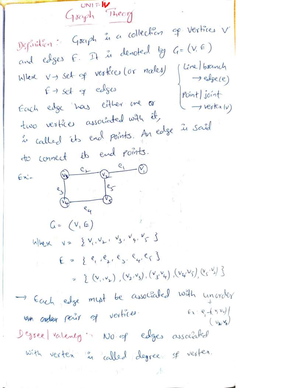 UNIT-IV
Graph Theory
Definition:- Graph is a collection of vertices V
and edges E. It is denoted by G=(V,E)
Where V→ set of vertices (or nodes)
E→ set of edges
Line/branch
→edge(e)
Point/joint
→vertex(v)
Each edge has either one or
two vertices associated with it,
is called its end points. An edge is said
to connect its end points.
Ex:-
e2 e1 v1
e3 e5
e4
G= (V,E)
Where V = {v1, v2, v3, v4, v5}
E = {e1, e2, e3, e4, e5}
→ Each edge must be associated with unorder
pair of vertices.
Degree/Valency:- No of edges associated
with vertex is called degree of vertex.